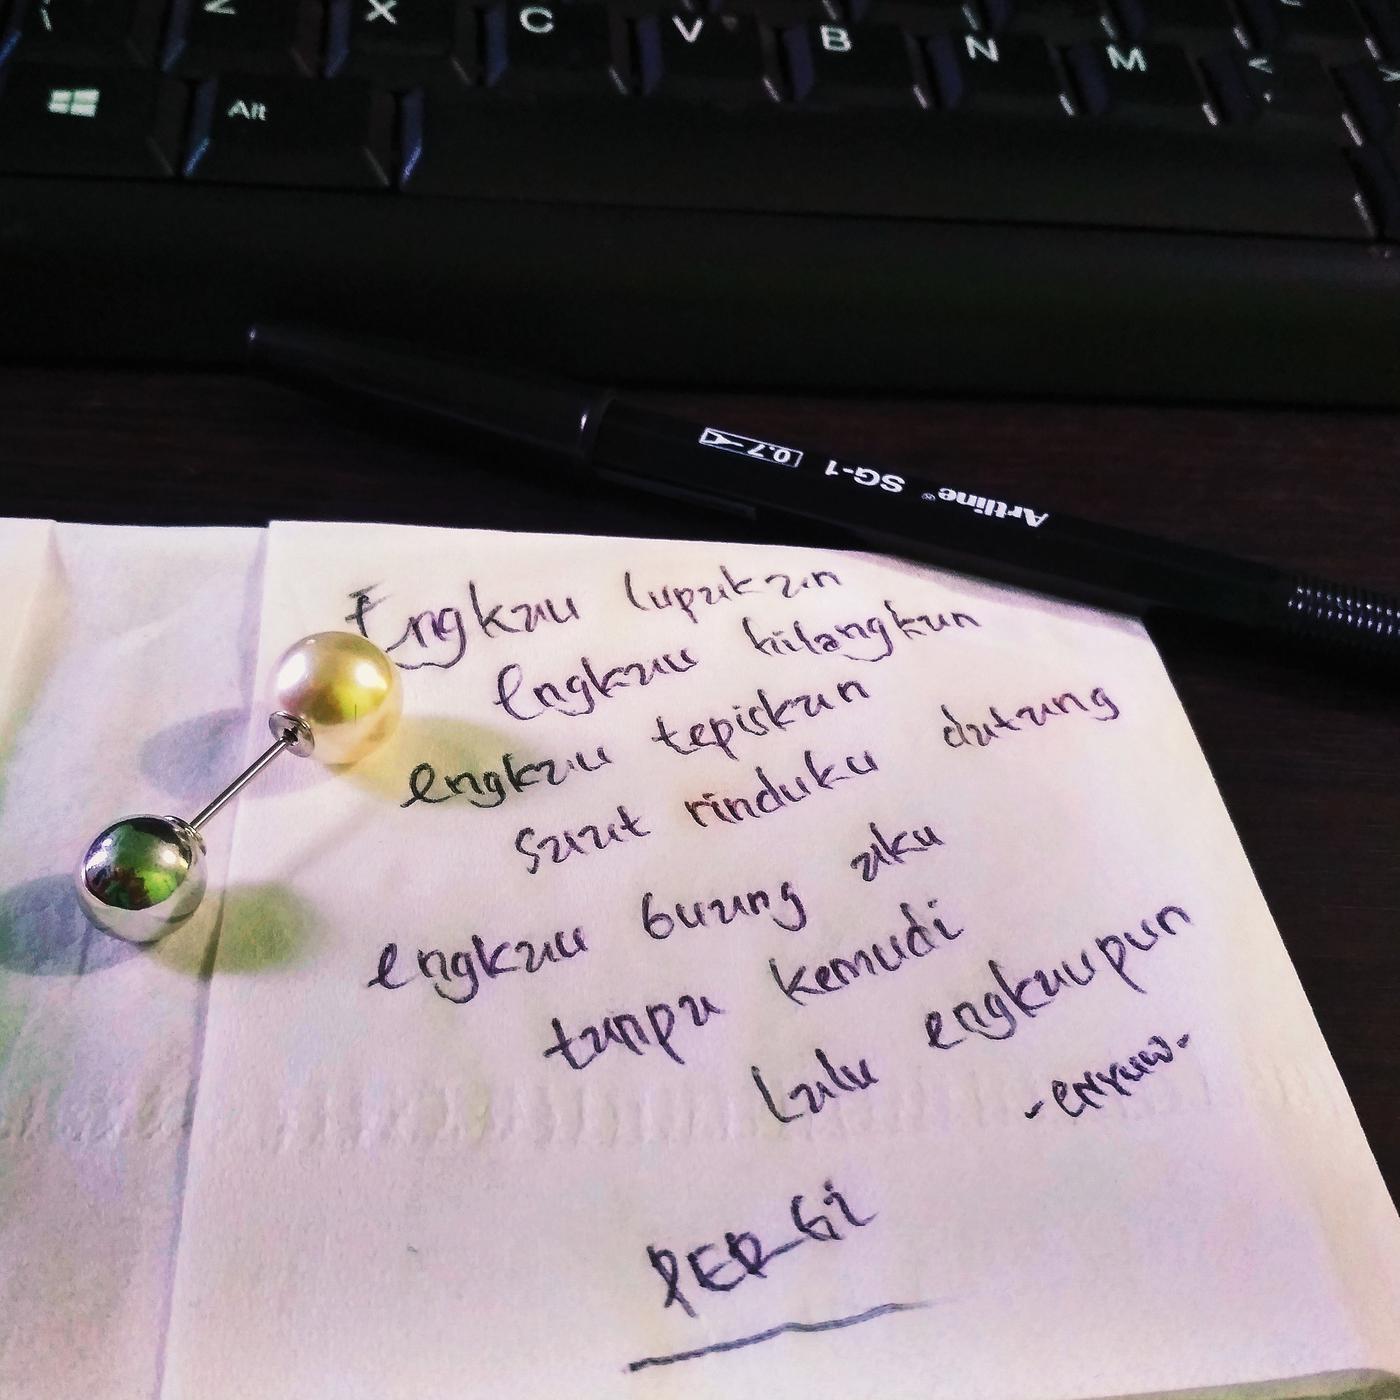 Z X C V B N M <
Alt
Artline® SG-1 0.7
Engkau lupakan
Engkau hilangkan
engkau tepiskan
saat rinduku datang
engkau buang aku
tanpa kemudi
Lalu engkaupun
PER_Gi